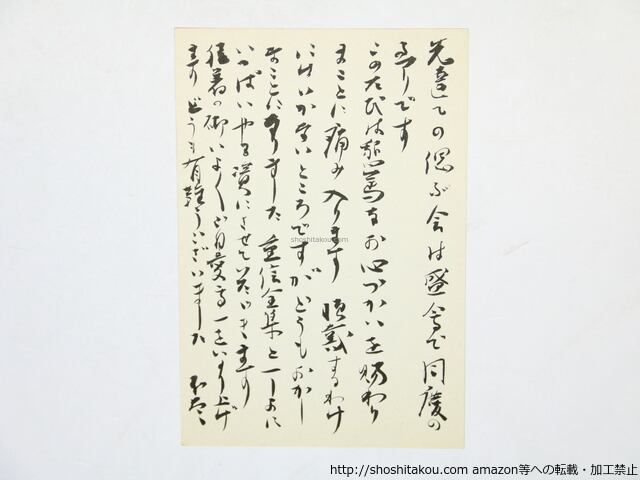 先達ての偲ぶ会は盛会で同慶の
至りです
このたびは懇篤なお心づかいを賜わり
まことに痛み入ります 頂戴するわけ
にはいかないところですがどうもおかし
なことになりました 全集と一しょに
いっぱいやる
御いよいよ御自愛
ます どうも有難うございました 不尽
shoshitakou.com
http://shoshitakou.com amazon等への転載・加工禁止